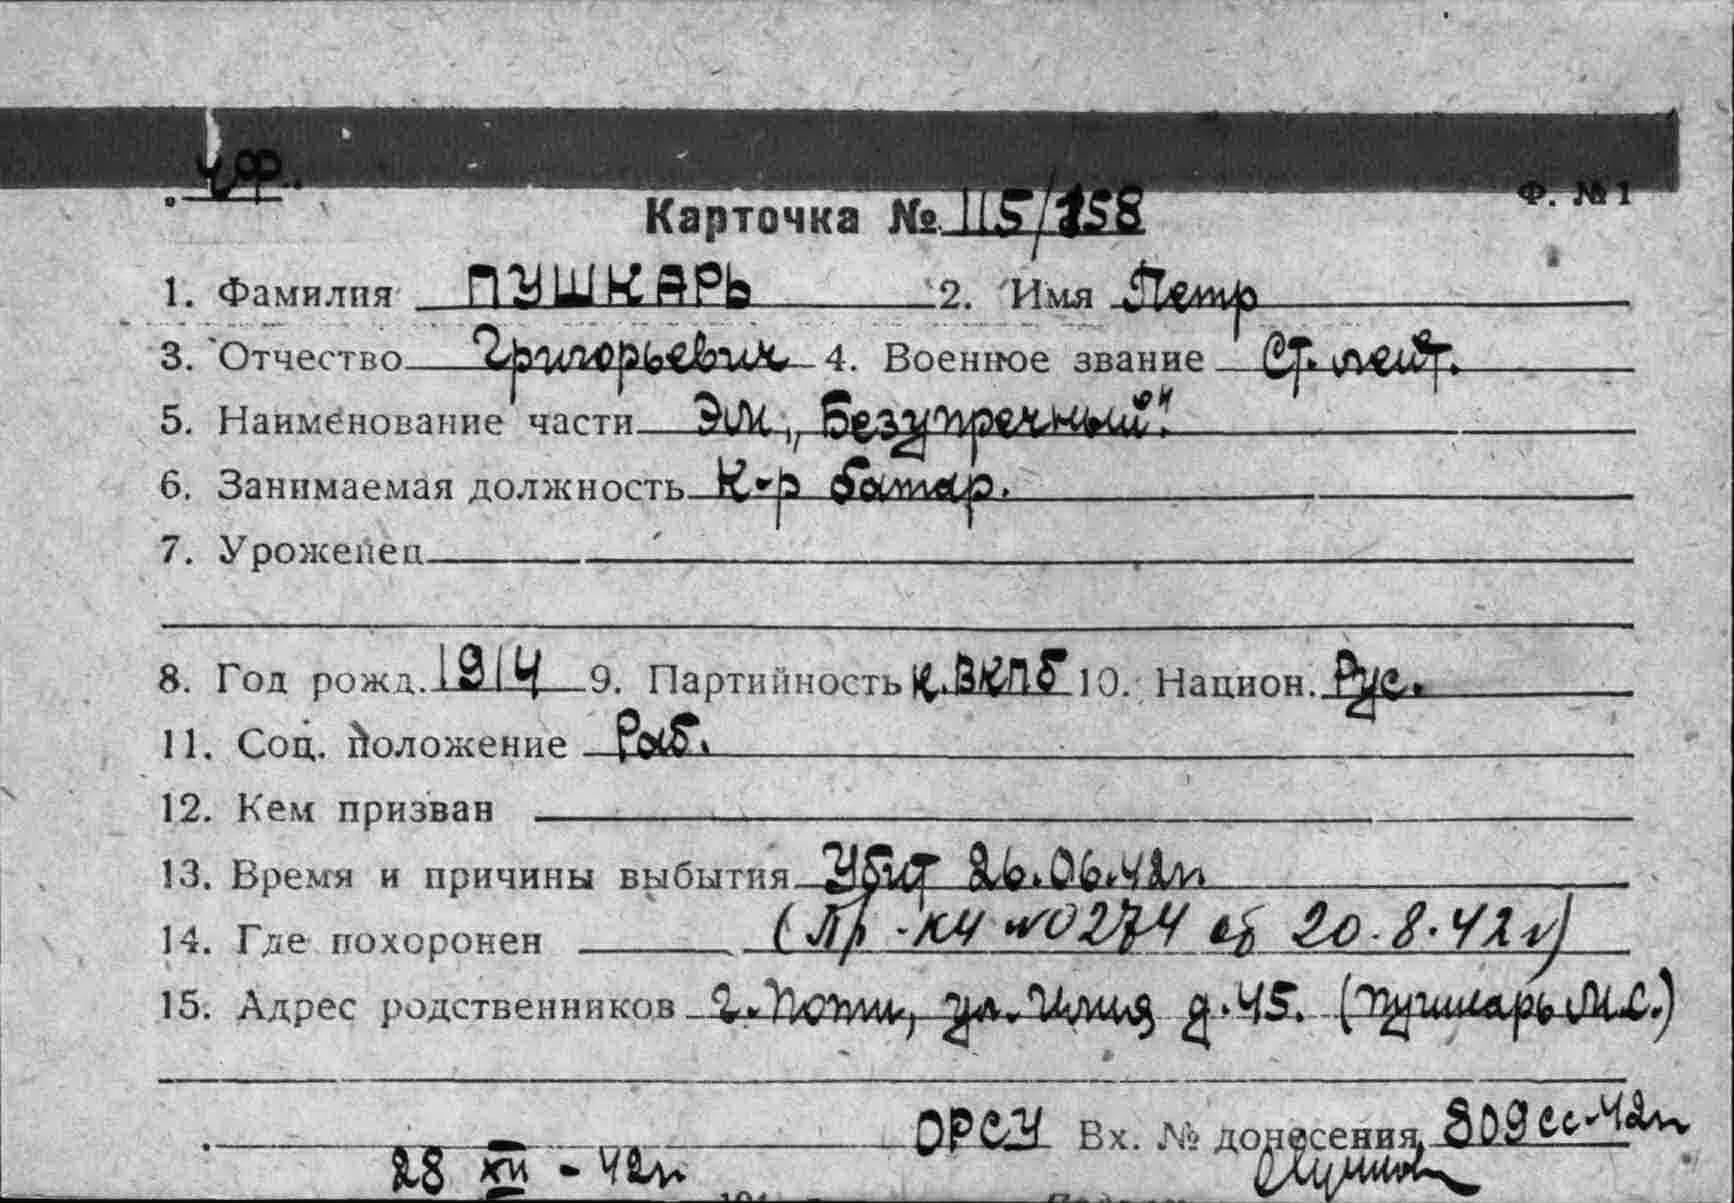 ЧФ.
Ф. № 1
Карточка № 115/158
1. Фамилия ПУШКАРЬ 2. Имя Петр
3. Отчество Григорьевич 4. Военное звание Ст. лейт.
5. Наименование части ЭМ „Безупречный".
6. Занимаемая должность К-р батар.
7. Уроженец
8. Год рожд. 1914 9. Партийность К.ВКПб 10. Национ. Рус.
11. Соц. положение Раб.
12. Кем призван
13. Время и причины выбытия Убит 26.06.42г.
14. Где похоронен (Пр-КЧ №0274 об 20.8.42г)
15. Адрес родственников г. Поти, ул. д. 45. (Пушкарь М.С.)
ОРСУ Вх. № донесения 809сс-42г
28 XII - 42г.